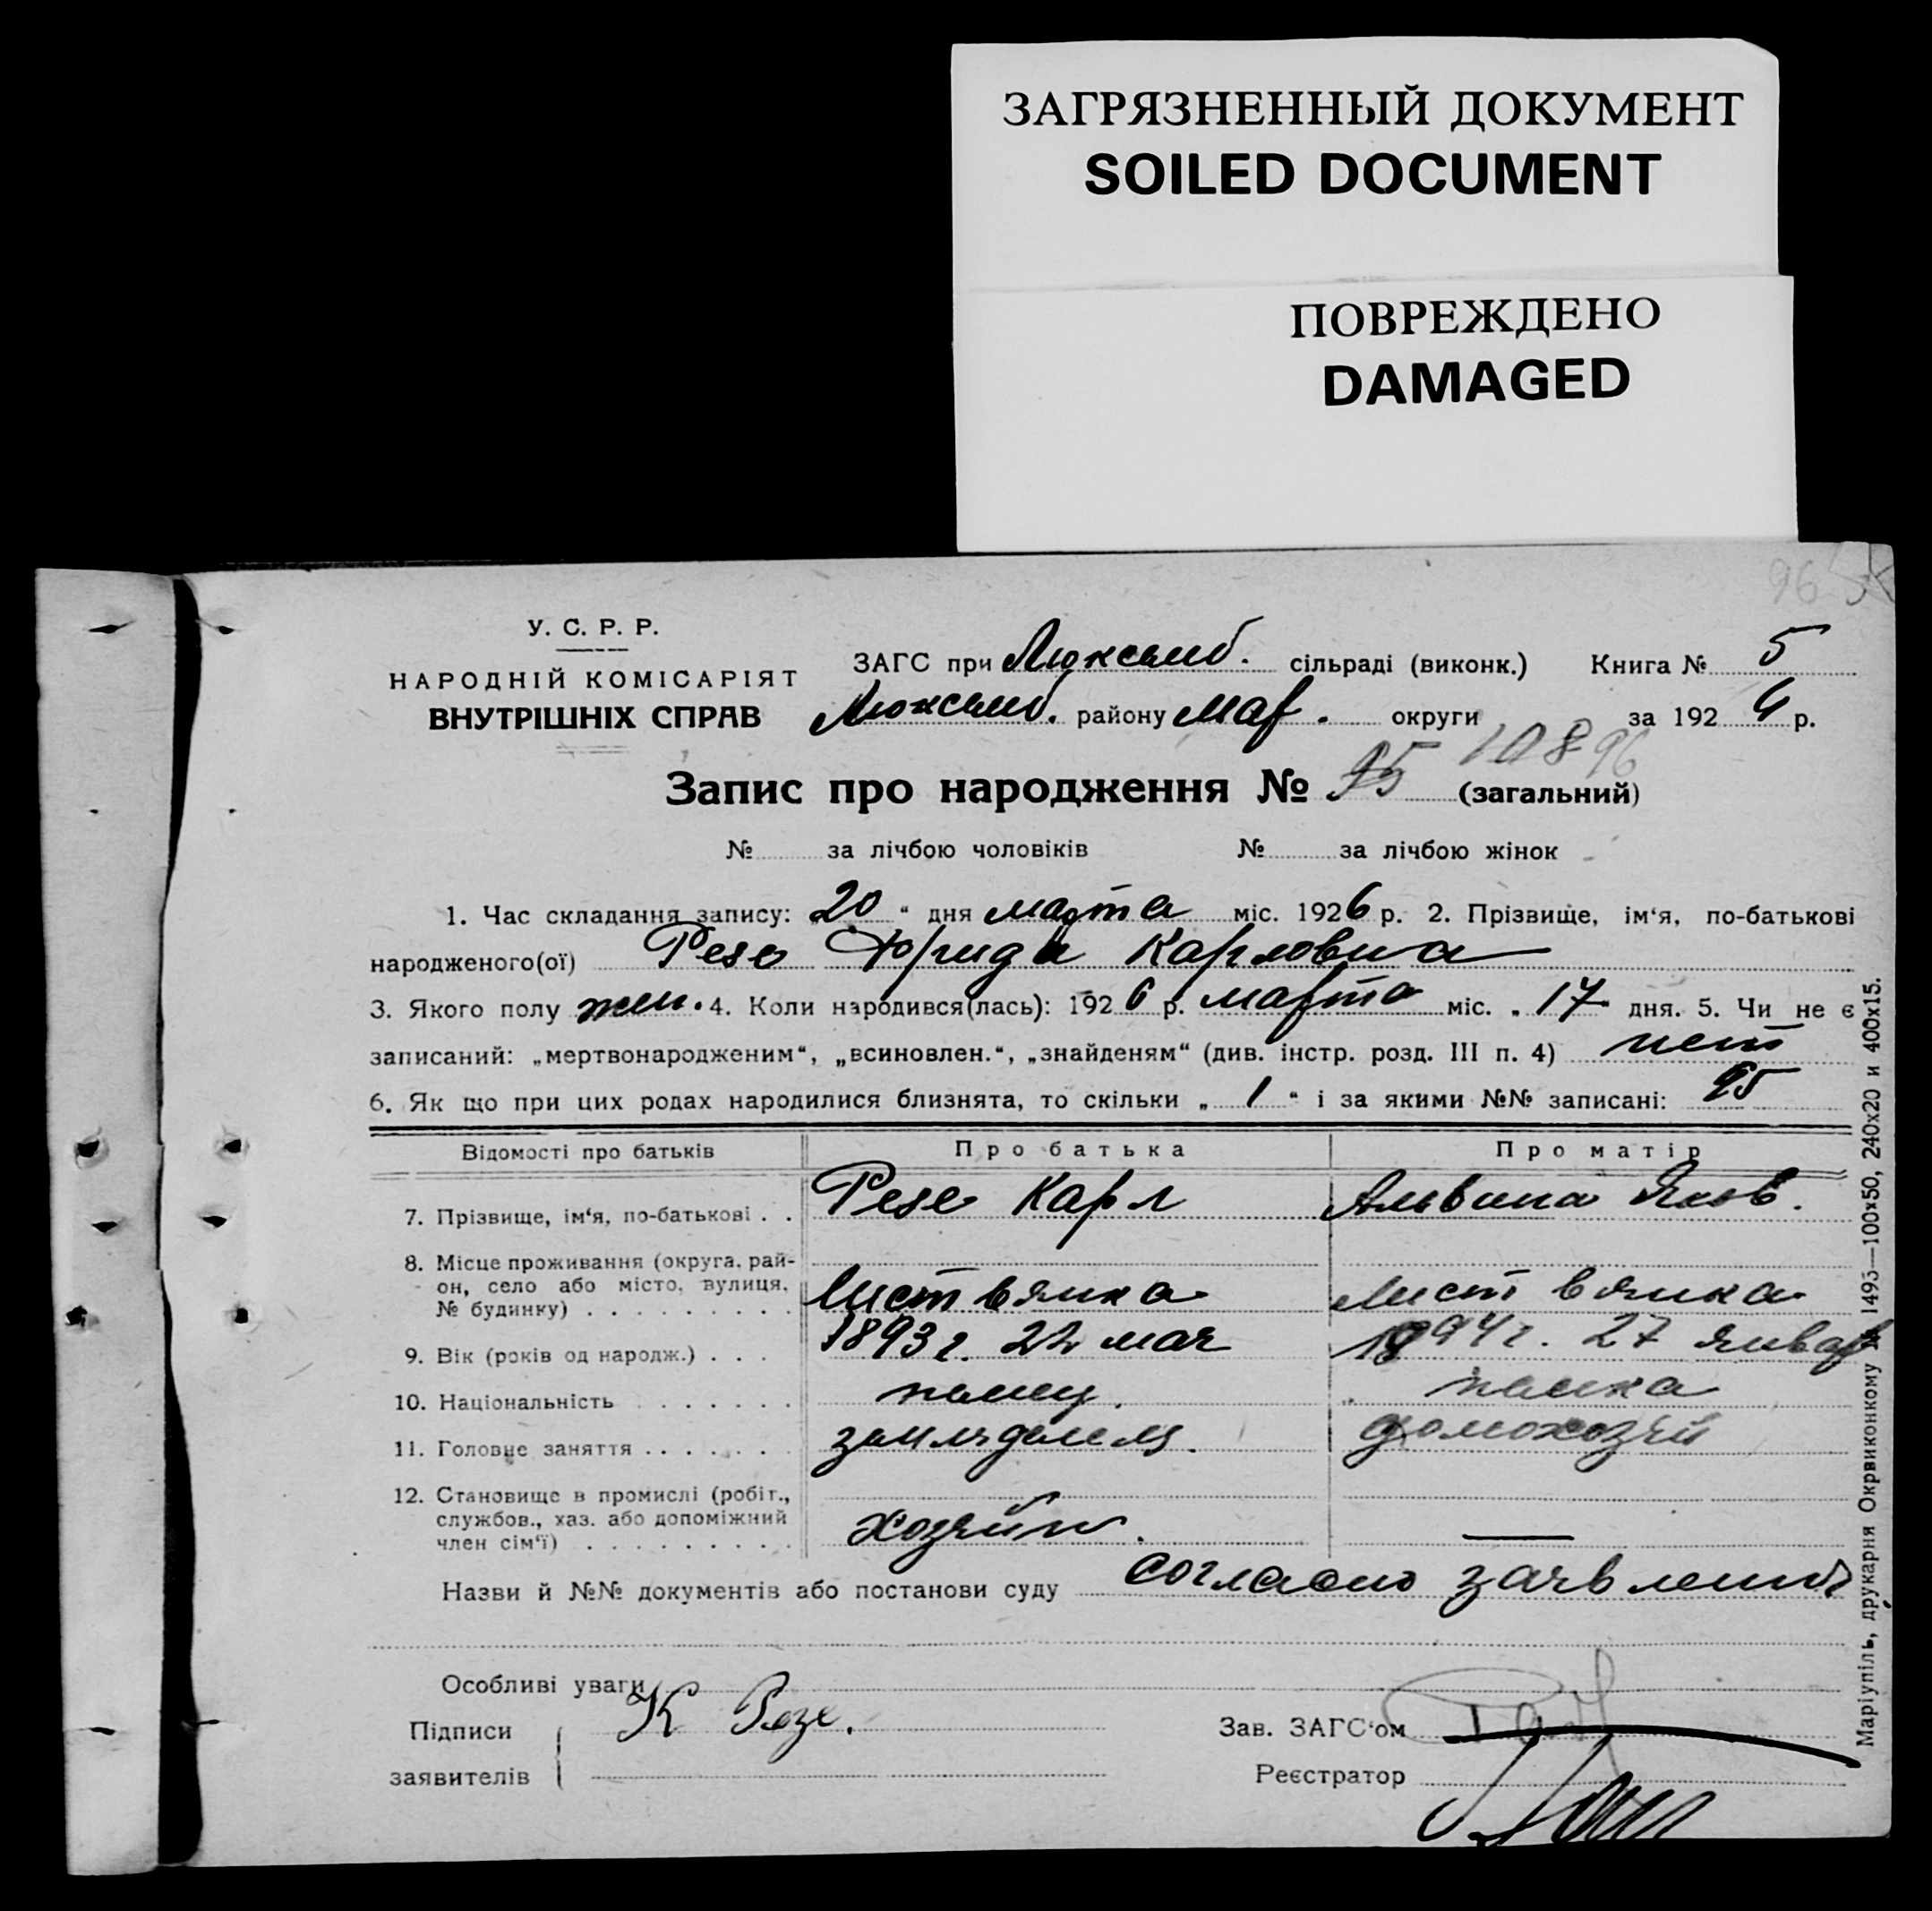 ЗАГРЯЗНЕННЫЙ ДОКУМЕНТ
SOILED DOCUMENT
ПОВРЕЖДЕНО
DAMAGED
96
У. С. Р. Р.
НАРОДНІЙ КОМІСАРІЯТ
ВНУТРІШНІХ СПРАВ
ЗАГС при Люксемб. сільраді (виконк.) Книга № 5
Люксемб. району Мар. округи за 192 6 р.
108 96
Запис про народження № 95 (загальний)
№ за лічбою чоловіків № за лічбою жінок
1. Час складання запису: „20“ дня марта міс. 1926 р. 2. Прізвище, ім‘я, по-батькові
народженого(ої) Резе Фрида Карловна
3. Якого полу жен. 4. Коли народився(лась): 192 6 р. марта міс. „ 17 “ дня. 5. Чи не є
записаний: „мертвонародженим“, „всиновлен.“, „знайденям“ (див. інстр. розд. III п. 4) нет
6. Як що при цих родах народилися близнята, то скільки „ 1 “ і за якими №№ записані: 95
Відомості про батьків Про батька Про матір
7. Прізвище, ім‘я, по-батькові . . Резе Карл Альвина Яков.
8. Місце проживання (округа, рай-
он, село або місто, вулиця,
№ будинку) . . . . . . . . . Листвянка Листвянка
9. Вік (років од народж.) . . . 1893 г. 22 мая 1894 г. 27 января
10. Національність . . . . . . . немец. немка
11. Головне заняття . . . . . . . земледелец. домохозяй
12. Становище в промислі (робіт.,
службов., хаз. або допоміжний
член сім‘ї) . . . . . . . . . хозяин. —
Назви й №№ документів або постанови суду согласно заявления
Особливі уваги
Підписи К Резе.
заявителів
Зав. ЗАГС‘ом
Реєстратор
Маріупіль, друкарня Окрвиконкому № 1493—100х50, 240х20 и 400х15.